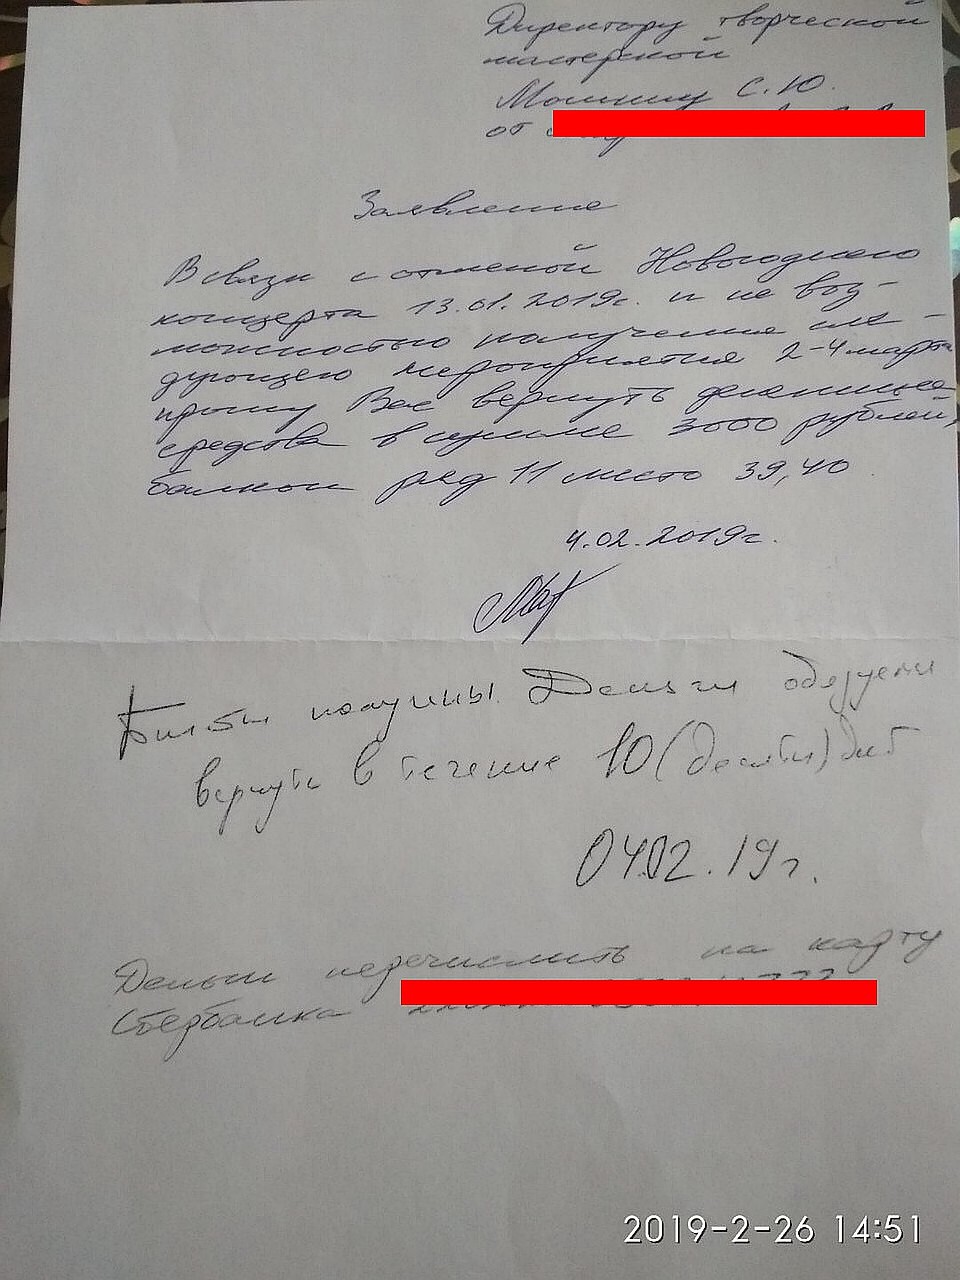 Директору творческой
мастерской
Мошину С.Ю.
от
Заявление
В связи с отменой Новогоднего
концерта 13.01.2019г. и не воз-
можностью получения сле-
дующего мероприятия 2-4 марта
прошу Вас вернуть денежные
средства в сумме 3000 рублей,
балкон ряд 11 место 39,40
4.02.2019г.
Билеты получены. Деньги обязуемся
вернуть в течение 10 (десяти) дней
04.02.19г.
Деньги перечислить на карту
Сбербанка
2019-2-26 14:51